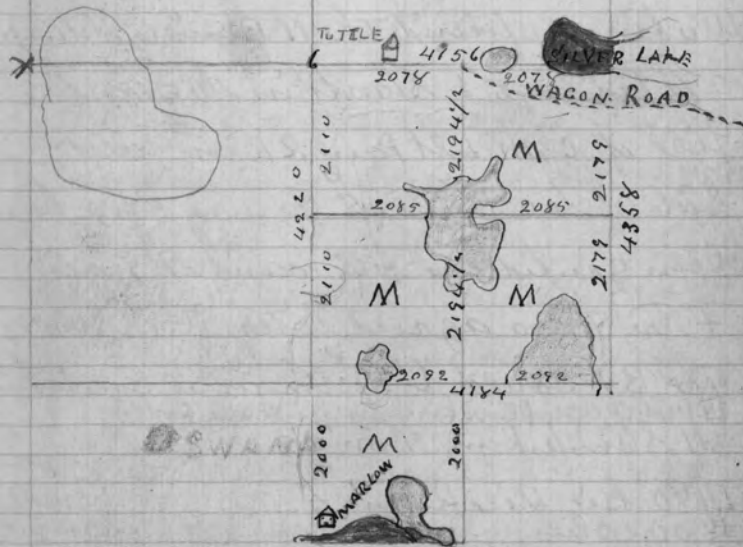 TUTELE
6 4156 SILVER LAKE
2078 2078
WAGON ROAD
2110 2194 1/2 M 2179
4220 2085 2085 4358
2110 M 2194 1/2 M 2179
2092 2092
4184
2000 M 2000
MARLOW